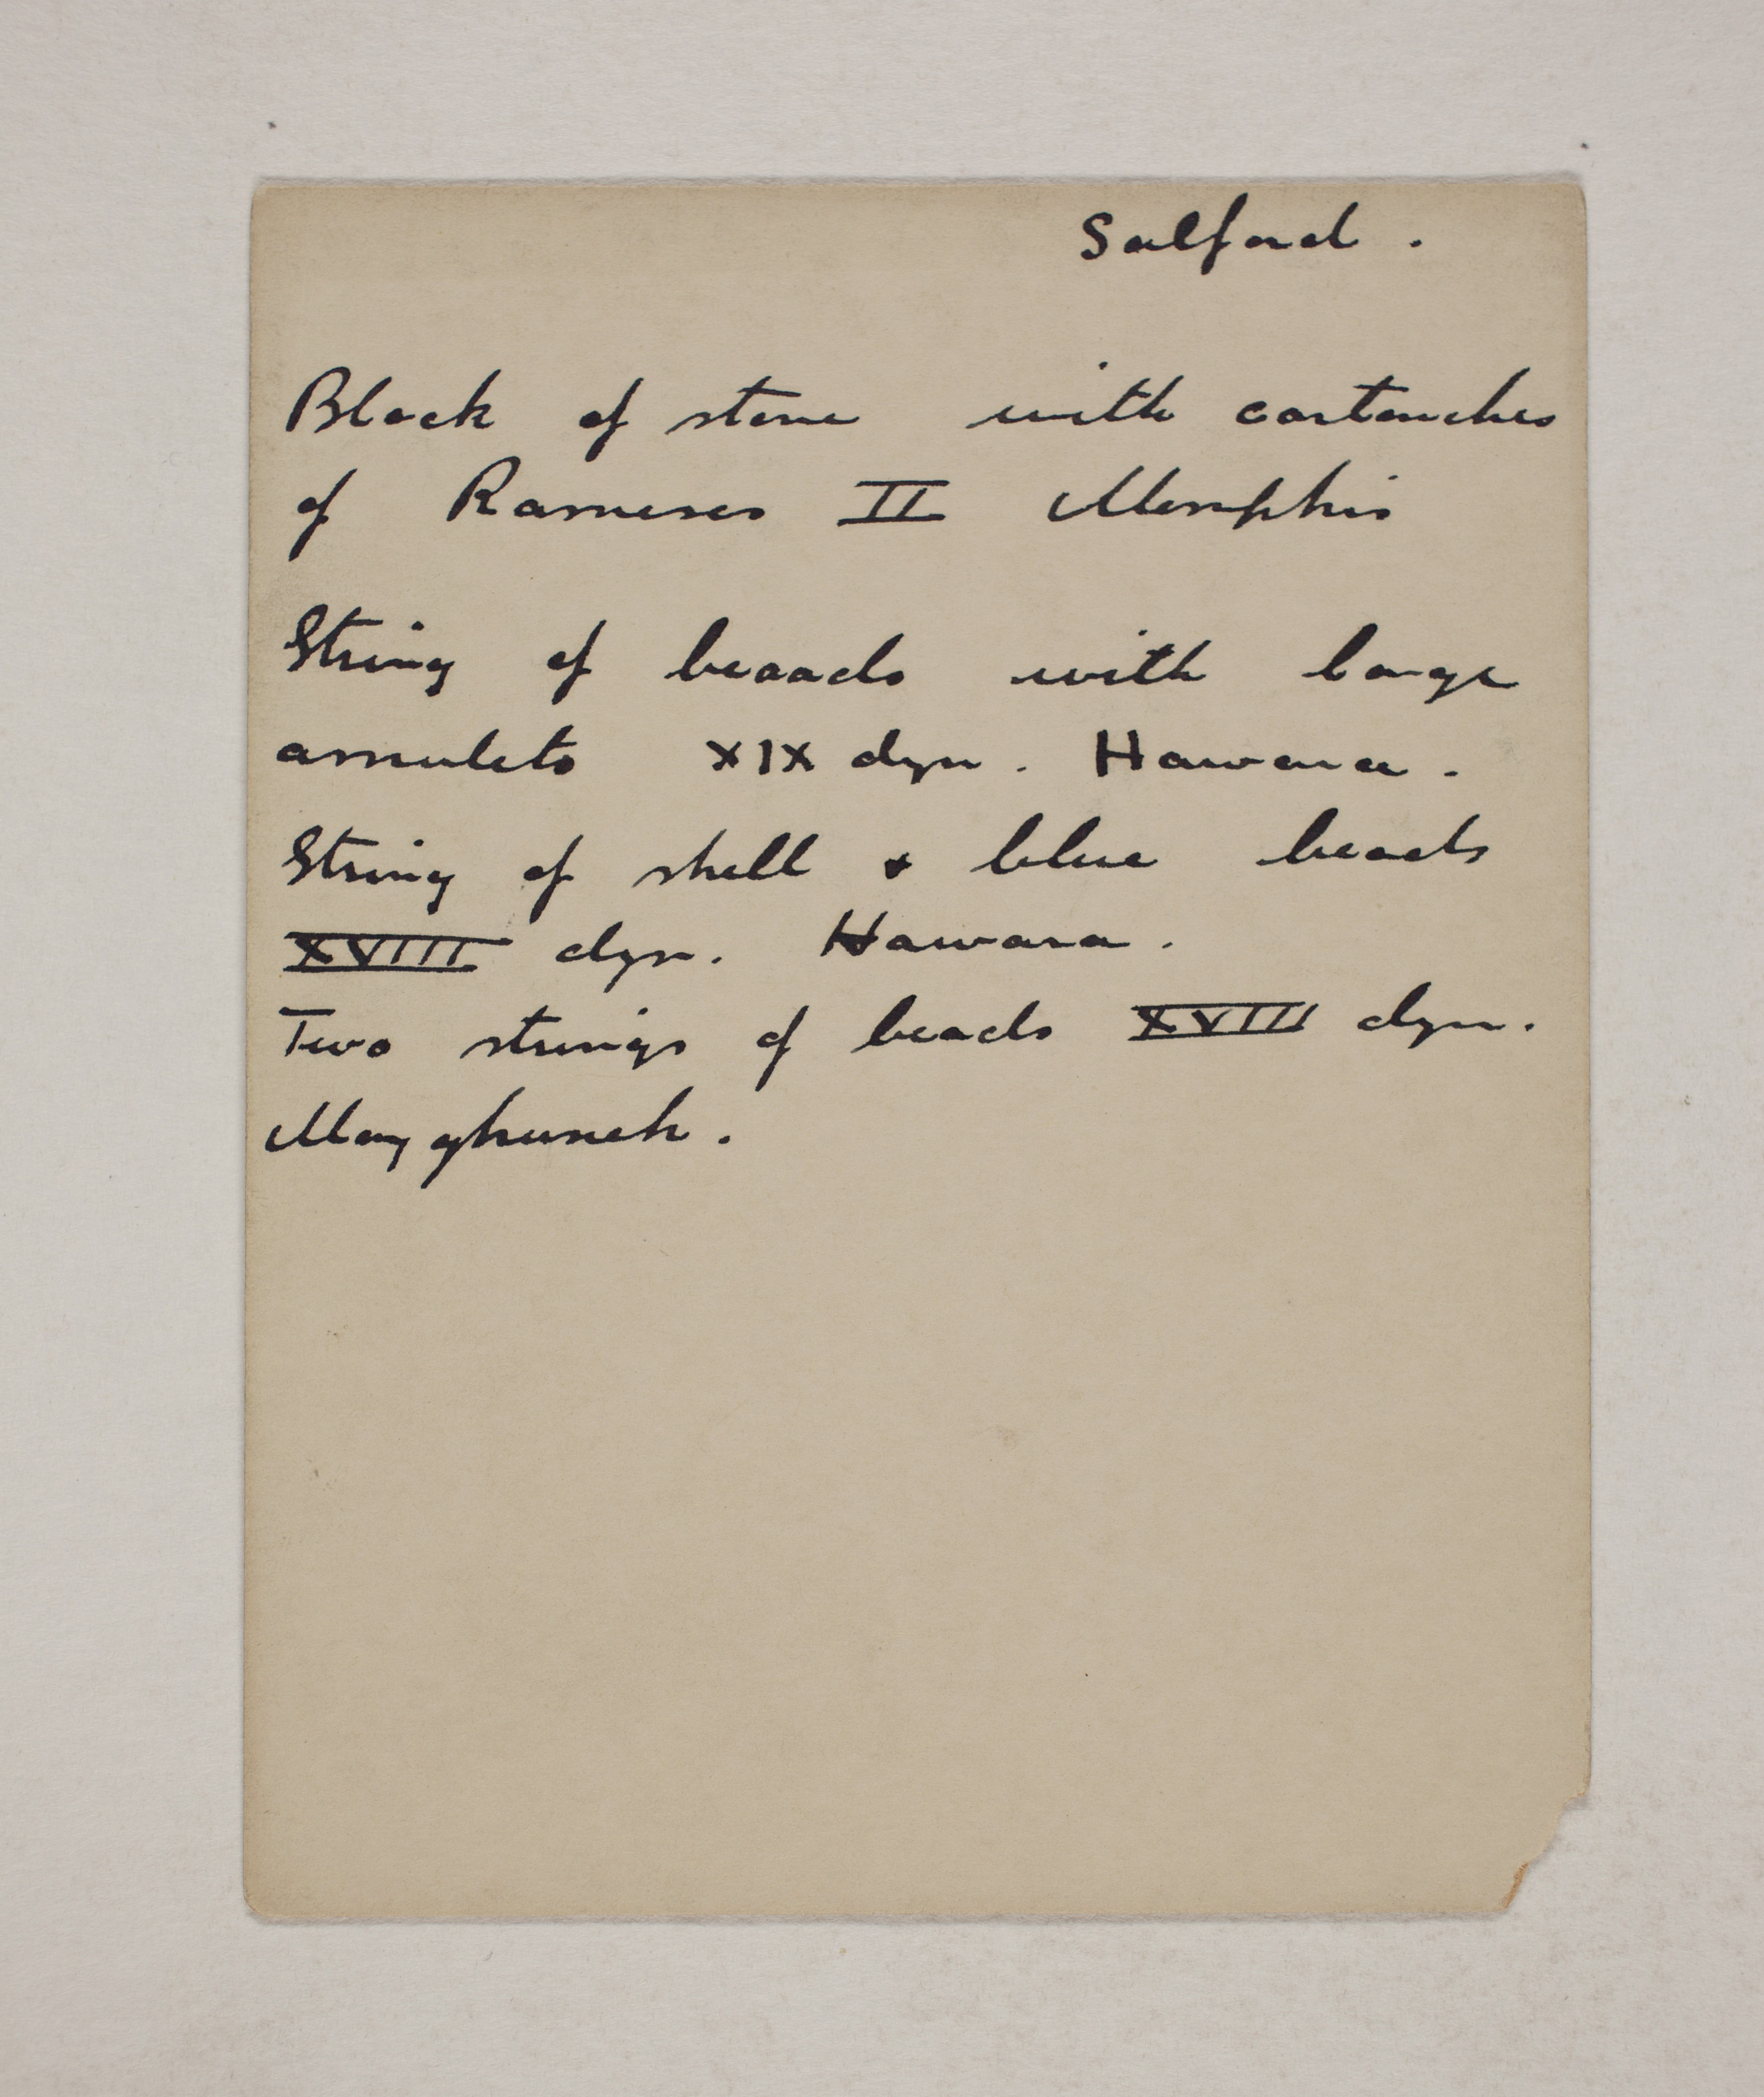 Salford.
Block of stone with cartouches
of Rameses II Memphis
String of beaads with large
amulets XIX dyn. Hawara.
String of shell & blue beads
XVIII dyn. Hawara.
Two strings of beads XVIII dyn.
Mayghuneh.